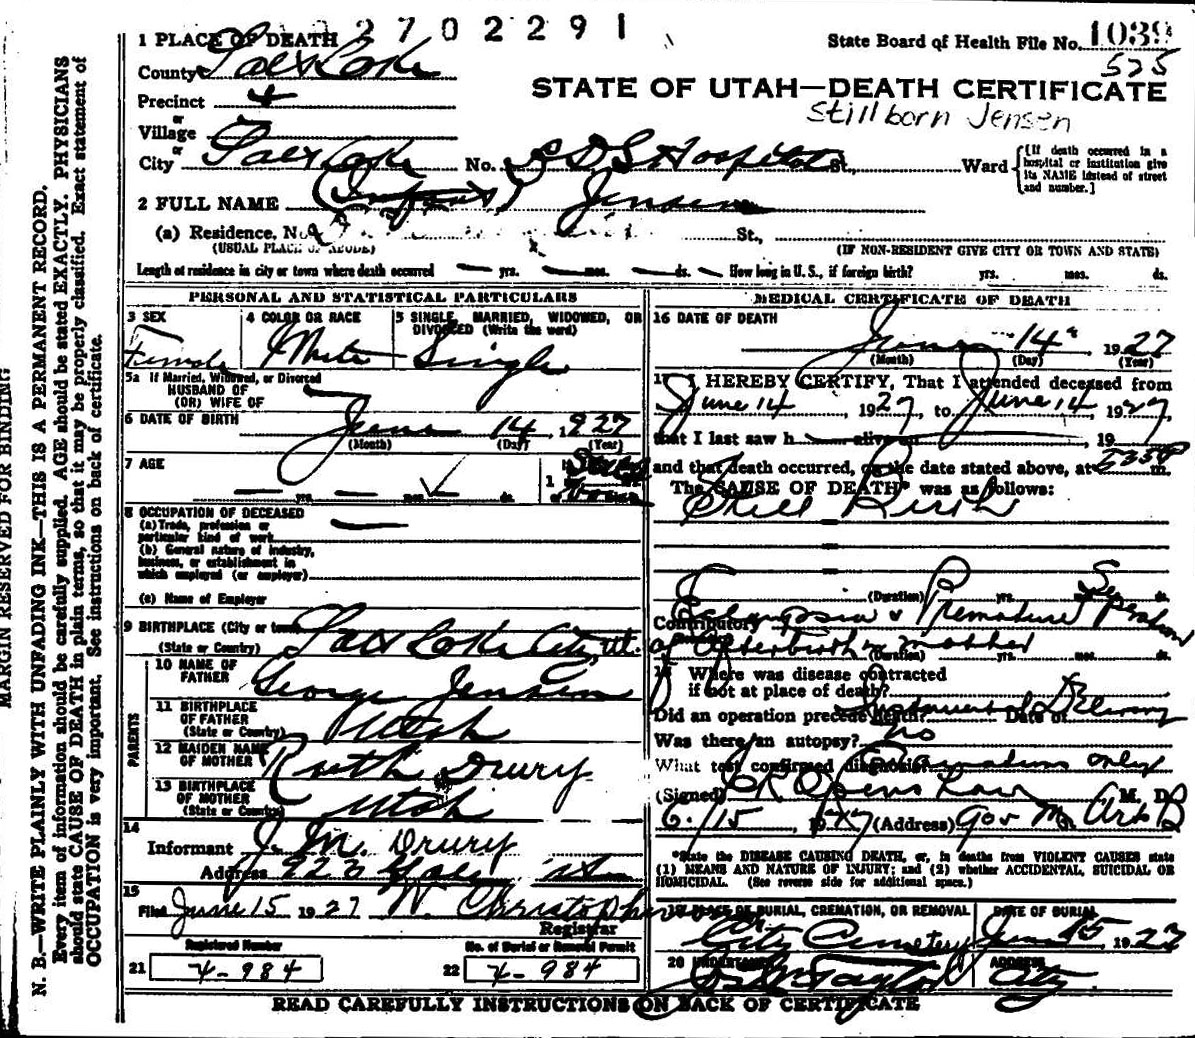 2702291
1 PLACE OF DEATH
State Board of Health File No. 1039
525
County Salt Lake
STATE OF UTAH—DEATH CERTIFICATE
Stillborn Jensen
Precinct 4
or
Village
or
City Salt Lake No. L D S Hospital St., Ward
[If death occurred in a hospital or institution give its NAME instead of street and number.]
2 FULL NAME (Infant) Jensen
(a) Residence, No. St.,
(USUAL PLACE OF ABODE) (IF NON-RESIDENT GIVE CITY OR TOWN AND STATE)
Length of residence in city or town where death occurred — yrs. — mos. — ds. — How long in U. S., if foreign birth? yrs. mos. ds.
PERSONAL AND STATISTICAL PARTICULARS
3 SEX
Female
4 COLOR OR RACE
White
5 SINGLE, MARRIED, WIDOWED, OR DIVORCED (Write the word)
Single
5a If Married, Widowed, or Divorced
HUSBAND OF
(OR) WIFE OF —
6 DATE OF BIRTH June 14, 1927
(Month) (Day) (Year)
7 AGE
— yrs. — mos. ds.
8 OCCUPATION OF DECEASED
(a) Trade, profession or
particular kind of work —
(b) General nature of industry,
business, or establishment in
which employed (or employer)
(c) Name of Employer
9 BIRTHPLACE (City or town) Salt Lake City, Ut.
(State or Country)
PARENTS
10 NAME OF
FATHER George Jensen
11 BIRTHPLACE
OF FATHER
(State or Country) Utah
12 MAIDEN NAME
OF MOTHER Ruth Drury
13 BIRTHPLACE
OF MOTHER
(State or Country) Utah
14
Informant J. M. Drury
Address 923 Yale
15
Filed June 15 1927 W. Christopherson
Registrar
Registered Number
21 4-984
No. of Burial or Removal Permit
22 4-984
MEDICAL CERTIFICATE OF DEATH
16 DATE OF DEATH
June 14 1927
(Month) (Day) (Year)
17 I HEREBY CERTIFY, That I attended deceased from
June 14, 1927, to June 14, 1927,
that I last saw h alive on , 19
and that death occurred, on the date stated above, at m.
The CAUSE OF DEATH* was as follows:
Still Birth
(Duration) yrs. mos. ds.
Contributory Eclampsia & Premature Separation
of Afterbirth in mother
(Duration) yrs. mos. ds.
18 Where was disease contracted
if not at place of death?
Did an operation precede death? Instrumental Delivery Date of
Was there an autopsy? no
What test confirmed diagnosis? Examination only
(Signed) R Openshaw M. D.
6/15, 1927 (Address)
*State the DISEASE CAUSING DEATH, or, in deaths from VIOLENT CAUSES state
(1) MEANS AND NATURE OF INJURY; and (2) whether ACCIDENTAL, SUICIDAL OR
HOMICIDAL. (See reverse side for additional space.)
19 PLACE OF BURIAL, CREMATION, OR REMOVAL
City Cemetery
DATE OF BURIAL
June 15, 1927
20 UNDERTAKER
S. M. Taylor
ADDRESS
City
READ CAREFULLY INSTRUCTIONS ON BACK OF CERTIFICATE
MARGIN RESERVED FOR BINDING
N. B.—WRITE PLAINLY WITH UNFADING INK—THIS IS A PERMANENT RECORD.
Every item of information should be carefully supplied. AGE should be stated EXACTLY. PHYSICIANS
should state CAUSE OF DEATH in plain terms, so that it may be properly classified. Exact statement of
OCCUPATION is very important. See instructions on back of certificate.